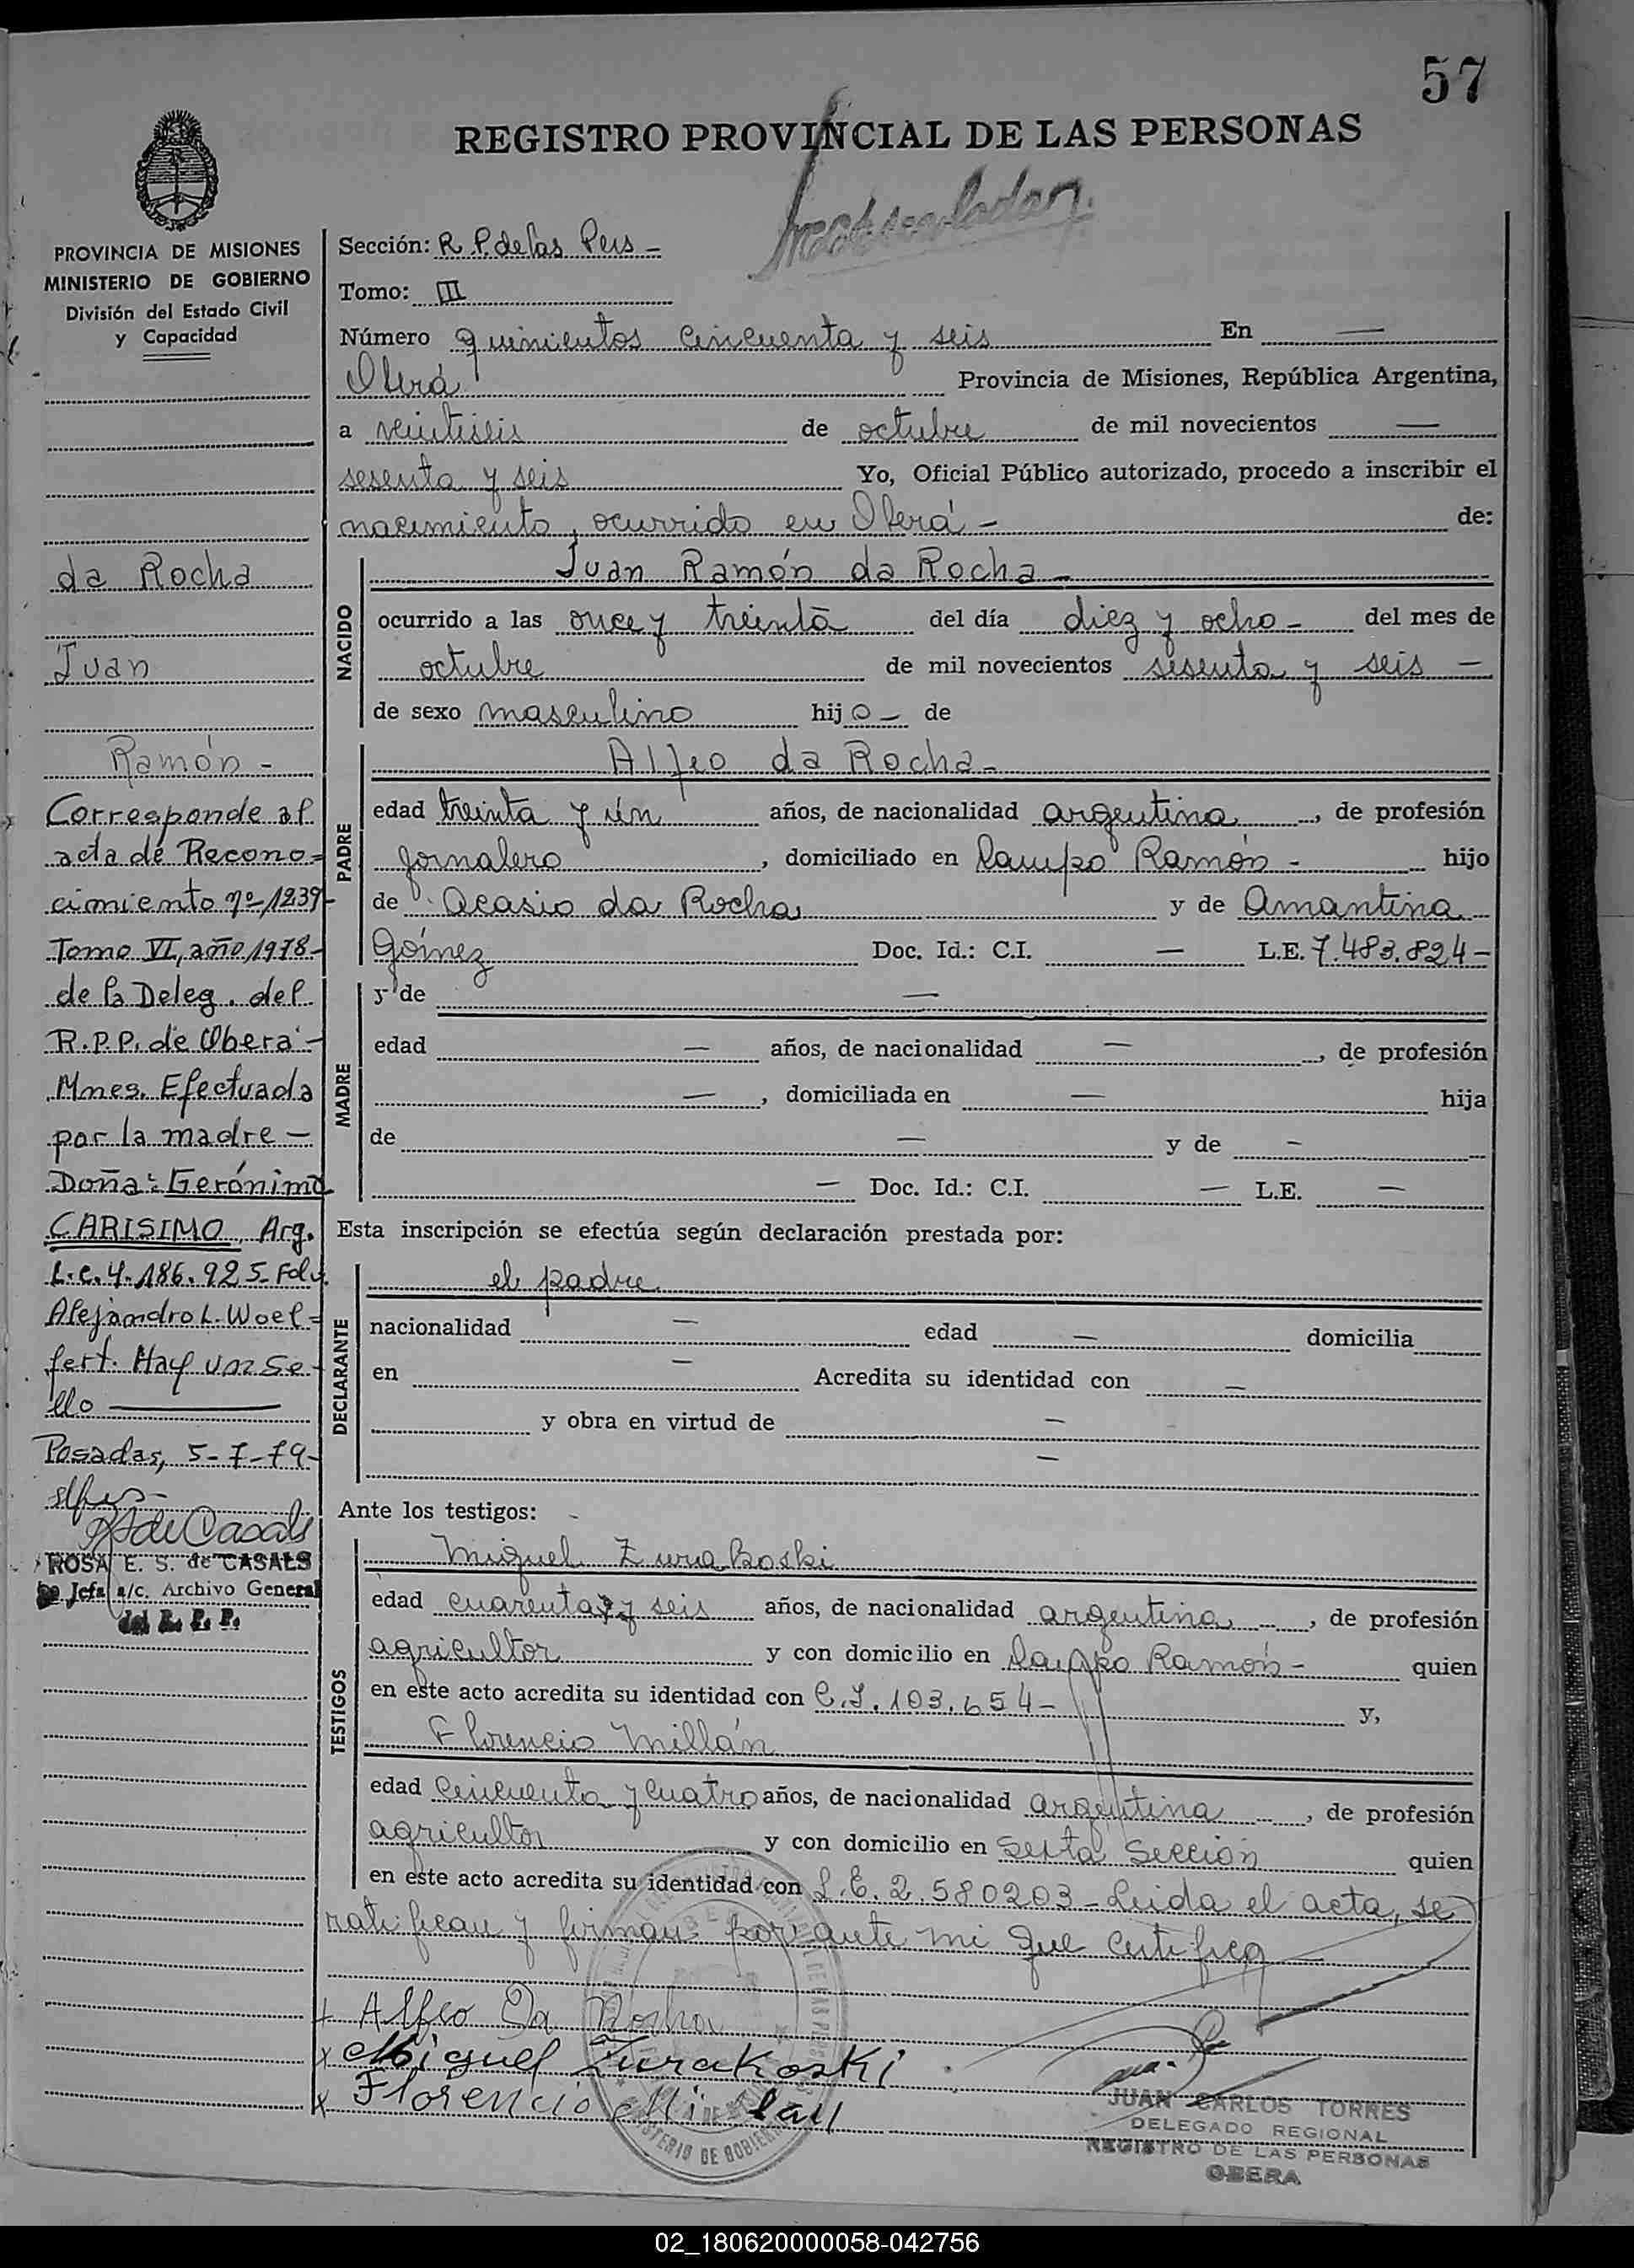 57
REGISTRO PROVINCIAL DE LAS PERSONAS
PROVINCIA DE MISIONES
MINISTERIO DE GOBIERNO
División del Estado Civil
y Capacidad
da Rocha
Juan
Ramón -
Corresponde al
acta de Recono=
cimiento nº 1239-
Tomo VI, año 1978-
de la Deleg. del
R.P.P. de Oberá-
Mnes. Efectuada
por la madre -
Doña: Gerónima
CARISIMO, Arg.
L.C. 4.186.925- Fdo.
Alejandro L. Woel=
fert. Hay un Se-
llo
Posadas, 5-7-79-
ROSA E. S. de CASALS
Jefa a/c. Archivo General
del R. P. P.
Sección: R.P. de las Pers -
Tomo: III
Número quinientos cincuenta y seis En —
Oberá Provincia de Misiones, República Argentina,
a veintiseis de octubre de mil novecientos —
sesenta y seis Yo, Oficial Público autorizado, procedo a inscribir el
nacimiento, ocurrido en Oberá - de:
NACIDO
Juan Ramón da Rocha -
ocurrido a las once y treinta del día diez y ocho - del mes de
octubre de mil novecientos sesenta y seis —
de sexo masculino hijo - de
PADRE
Alfeo da Rocha -
edad treinta y ún años, de nacionalidad argentina, de profesión
jornalero, domiciliado en Campo Ramón - hijo
de Acasio da Rocha y de Amantina
Gómez Doc. Id.: C.I. — L.E. 7.483.824-
MADRE
y de —
edad — años, de nacionalidad —, de profesión
—, domiciliada en — hija
de — y de -
— Doc. Id.: C.I. — L.E. —
Esta inscripción se efectúa según declaración prestada por:
DECLARANTE
el padre
nacionalidad — edad — domicilia
en — Acredita su identidad con —
y obra en virtud de —
—
Ante los testigos:
TESTIGOS
Miguel ZuraKoski
edad cuarenta y seis años, de nacionalidad argentina, de profesión
agricultor y con domicilio en Campo Ramón - quien
en este acto acredita su identidad con C.I. 103.654- y,
Florencio Millán
edad cincuenta y cuatro años, de nacionalidad argentina, de profesión
agricultor y con domicilio en Sexta Sección quien
en este acto acredita su identidad con L.E. 2.580203- Leida el acta, se
ratifican y firman por ante mi que certifico
Alfeo Da Rocha
Miguel Zurakoski
Florencio Millan
JUAN CARLOS TORRES
DELEGADO REGIONAL
REGISTRO DE LAS PERSONAS
OBERA
02_180620000058-042756